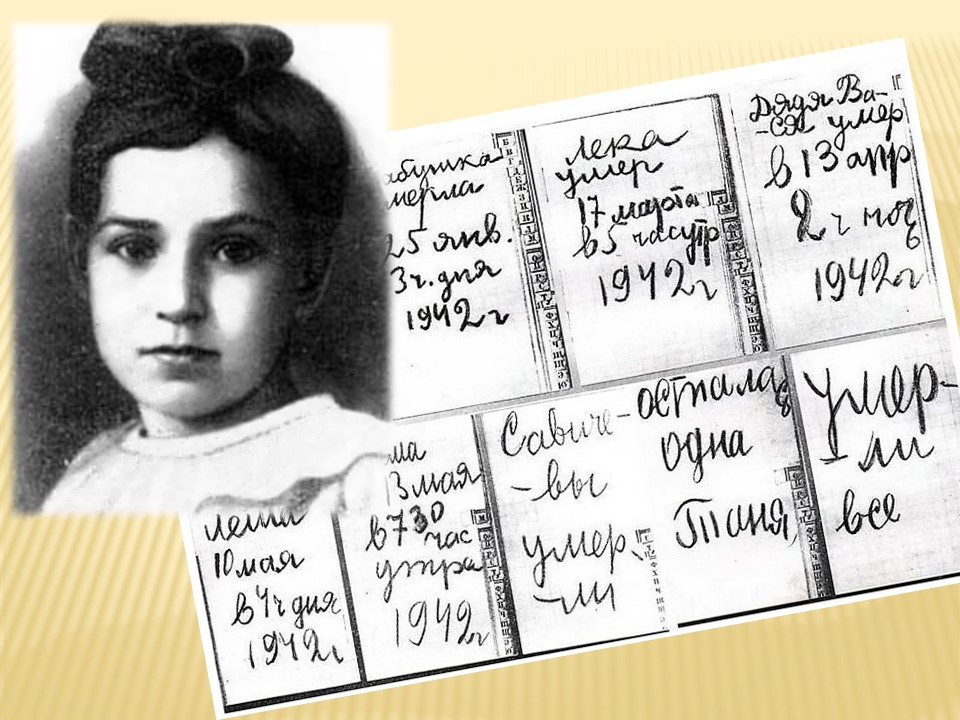 абушка
мерла
25 янв.
3 ч. дня
1942 г
Лека
умер
17 марта
в 5 час утр
1942 г
Дядя Ва-
-ся умер
в 13 апр
2 ч ноч
ь
1942 г
Леша
10 мая
в 4 ч дня
1942 г
ма
13 мая
в 7 30
час
утра
1942 г
Савиче-
-вы
умер-
-ли
осталась
одна
Таня
умер-
-ли
все